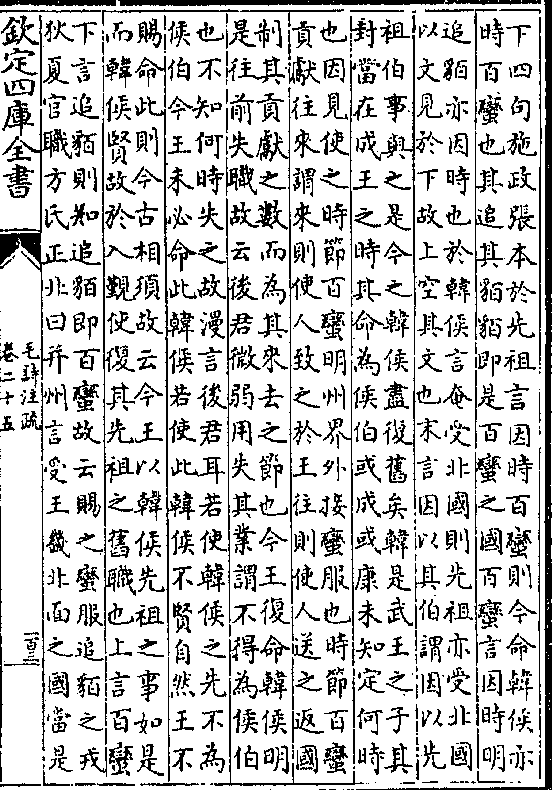 下四句施政張本於先祖言因時百蠻則今命韓侯亦
時百蠻也其追其貊貊即是百蠻之國百蠻言因時明
追貊亦因時也於韓侯言奄受北國則先祖亦受北國
以文見於下故上空其文也末言因以其伯謂因以先
祖伯事與之是今之韓侯盡復舊矣韓是武王之子其
對當在成王之時其命為侯伯或成或康未知定何時
也因見使之時節百蠻明州界外接蠻服也時節百蠻
貢獻往來謂來則使人致之於王往則使人送之返國
制其貢獻之數而為其來去之節也今王復命韓侯明
是往前失職故云後君微弱用失其業謂不得為侯伯
也不知何時失之故漫言後君耳若使韓侯之先不為
侯伯今王未必命此韓侯若使此韓侯不賢自然王不
賜命此則今古相須故云今王以韓侯先祖之事如是
而韓侯賢故於入覲使復其先祖之舊職也上言百蠻
下言追貊則知追貊即百蠻故云賜之蠻服追貊之戎
狄夏官職方氏正北曰并州言受王畿北面之國當是
欽定四庫全書
毛詩注疏
卷二十五